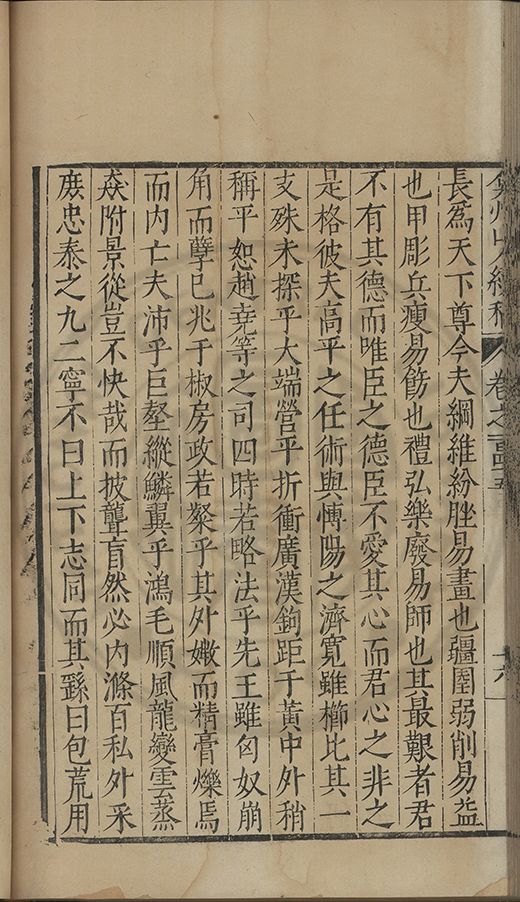 弇州山人續稿 卷之一百四十五 十六
長為天下尊今夫綱維紛脞易畫也疆圉弱削易益
也甲彫兵瘦易飭也禮弘樂廢易師也其最艱者君
不有其德而唯臣之德臣不愛其心而君心之非之
是格彼夫高平之任術與博陽之濟寬雖櫛比其一
支殊未探乎大端營平折衝廣漢鉤距于黃中外稍
稱平恕趙堯等之司四時若略法乎先王雖匈奴崩
角而孽已兆于椒房政若粲乎其外嫩而精膏爍焉
而內亡夫沛乎巨壑縱鱗翼乎鴻毛順風龍變雲蒸
猋附景從豈不快哉而披聾盲然必內滌百私外采
庻忠泰之九二寧不曰上下志同而其繇曰包荒用